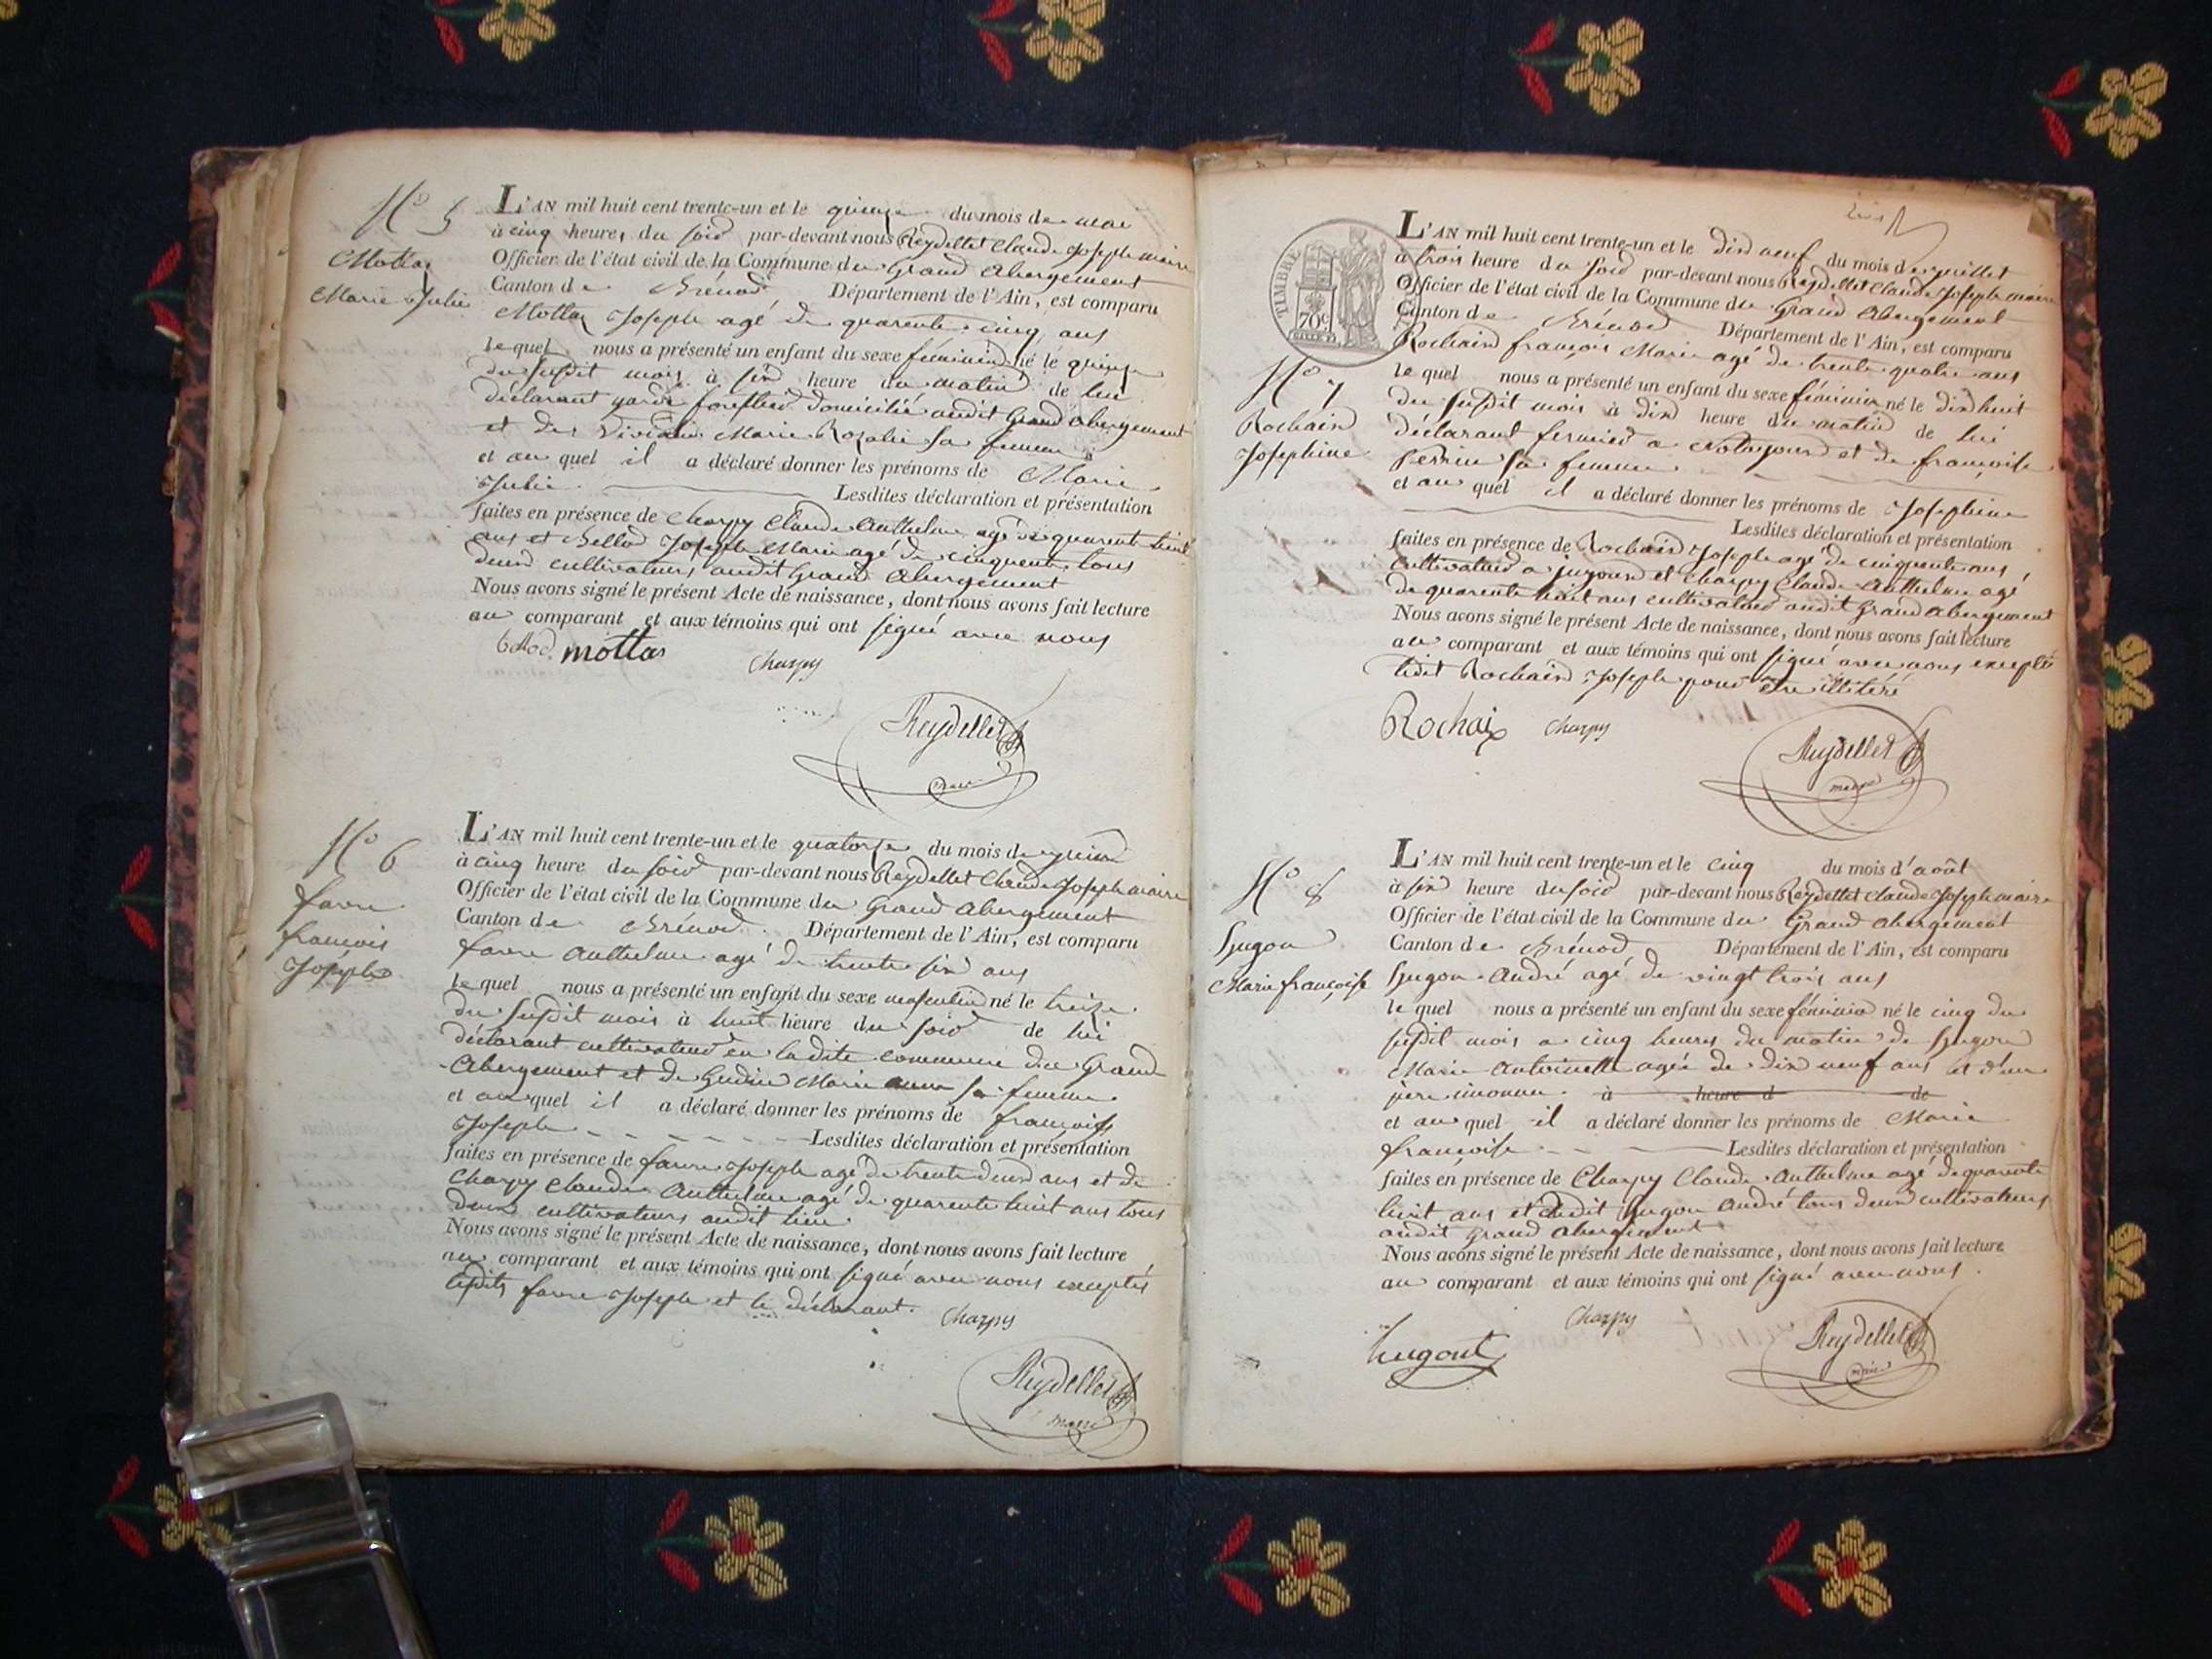 N° 5
Mottaz
Marie Julie
L'AN mil huit cent trente-un et le quinze du mois de mai
à cinq heures du soir par-devant nous Reydellet Claude Joseph maire
Officier de l'état civil de la Commune du Grand Abergement
Canton de Brénod Département de l'Ain, est comparu
Mottaz Joseph agé de quarente cinq ans
lequel nous a présenté un enfant du sexe féminin né le quinze
du susdit mois à six heure du matin de lui
déclarant garde forestier domicilié audit Grand Abergement
et de Marie Rozalie sa femme
et au quel il a déclaré donner les prénoms de Marie
Julie Lesdites déclaration et présentation
faites en présence de Charpy Claude Anthelme agé de quarente huit
ans et Bellod Joseph Marie agé de cinquente, tous
deux cultivateurs audit Grand Abergement
Nous avons signé le présent Acte de naissance, dont nous avons fait lecture
au comparant et aux témoins qui ont signé avec nous
Bellod mottas Charpy
Reydellet
maire
N° 6
favre
françois
Joseph
L'AN mil huit cent trente-un et le quatorze du mois de juin
à cinq heure du soir par-devant nous Reydellet Claude Joseph maire
Officier de l'état civil de la Commune du Grand Abergement
Canton de Brénod Département de l'Ain, est comparu
favre Anthelme agé de trente six ans
lequel nous a présenté un enfant du sexe masculin né le treize
du susdit mois à huit heure du soir de lui
déclarant cultivateur en ladite commune du Grand
Abergement et de Gudin Marie anne sa femme
et au quel il a déclaré donner les prénoms de françois
Joseph Lesdites déclaration et présentation
faites en présence de favre Joseph agé de trente deux ans et de
Charpy Claude Anthelme agé de quarente huit ans tous
deux cultivateurs audit lieu
Nous avons signé le présent Acte de naissance, dont nous avons fait lecture
au comparant et aux témoins qui ont signé avec nous exceptés
lesdits favre Joseph et le déclarant. Charpy
Reydellet
maire
TIMBRE
70c
N° 7
Rochaix
Josephine
L'AN mil huit cent trente-un et le dix neuf du mois de juillet
à trois heure du soir par-devant nous Reydellet Claude Joseph maire
Officier de l'état civil de la Commune du Grand Abergement
Canton de Brénod Département de l'Ain, est comparu
Rochaix françois Marie agé de trente quatre ans
lequel nous a présenté un enfant du sexe féminin né le dix huit
du susdit mois à dix heure du matin de lui
déclarant fermier a et de françoise
Perrin sa femme
et au quel il a déclaré donner les prénoms de Josephine
Lesdites déclaration et présentation
faites en présence de Rochaix Joseph agé de cinquente ans
cultivateur a et Charpy Claude Anthelme agé
de quarente huit ans cultivateur audit Grand Abergement
Nous avons signé le présent Acte de naissance, dont nous avons fait lecture
au comparant et aux témoins qui ont signé avec nous excepté
ledit Rochaix Joseph pour être illitéré
Rochaix Charpy
Reydellet
maire
N° 8
hugon
Marie françoise
L'AN mil huit cent trente-un et le cinq du mois d'août
à six heure du soir par-devant nous Reydellet Claude Joseph maire
Officier de l'état civil de la Commune du Grand Abergement
Canton de Brénod Département de l'Ain, est comparu
hugon André agé de vingt trois ans
lequel nous a présenté un enfant du sexe féminin né le cinq du
susdit mois a cinq heures du matin de hugon
Marie Antoinette agée de dix neuf ans et d'un
père inconnu. à heure d de
et au quel il a déclaré donner les prénoms de Marie
françoise Lesdites déclaration et présentation
faites en présence de Charpy Claude Anthelme agé de quarente
huit ans et dudit hugon André tous deux cultivateurs
audit Grand Abergement
Nous avons signé le présent Acte de naissance, dont nous avons fait lecture
au comparant et aux témoins qui ont signé avec nous.
hugont Charpy
Reydellet
maire